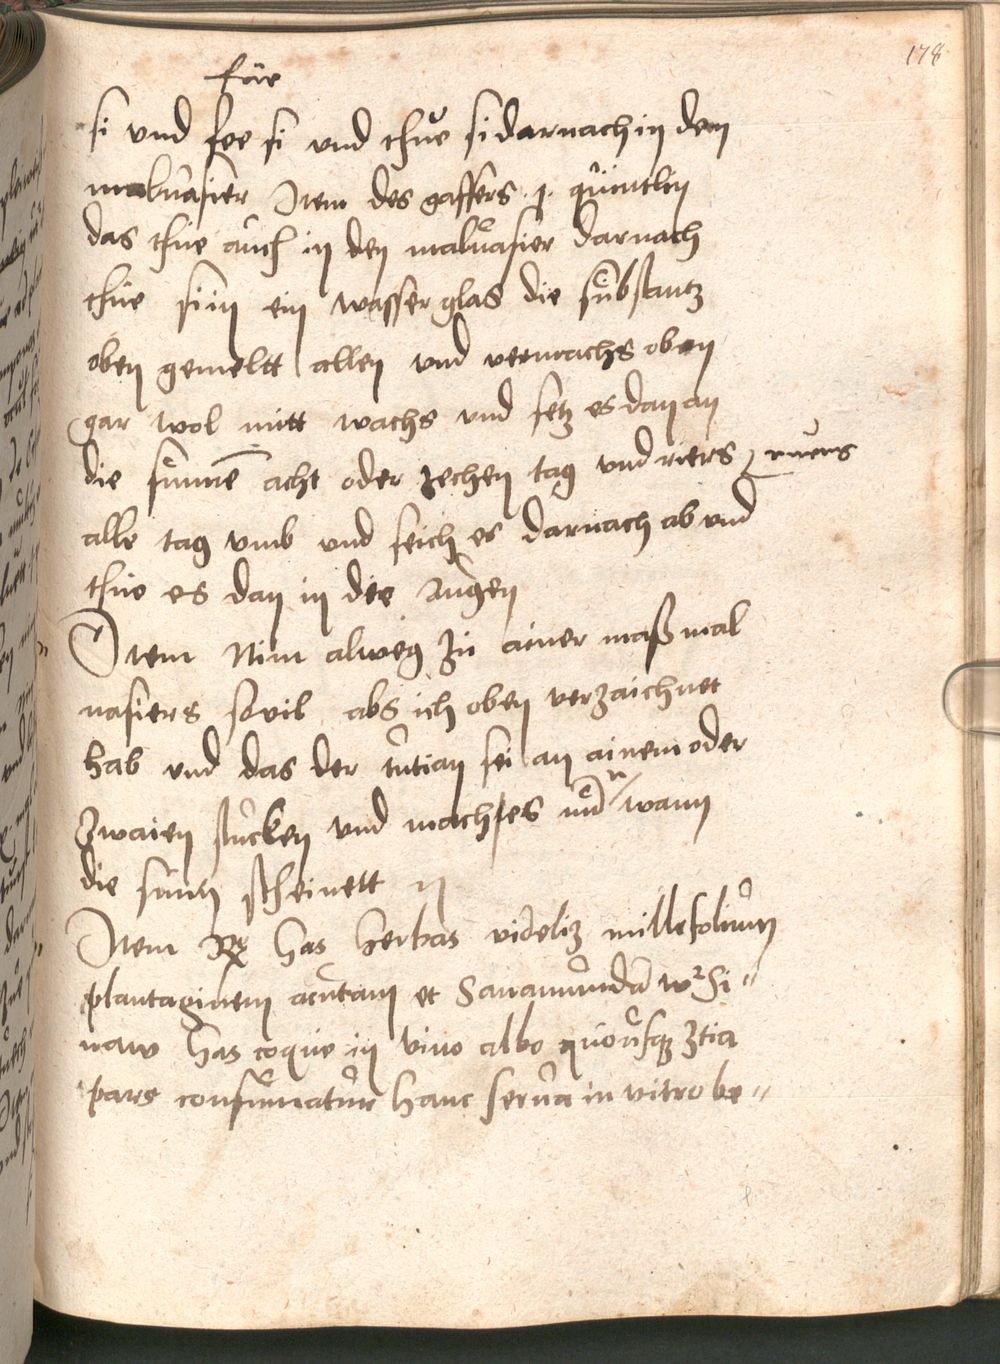 178
säe
si und see si und thue si darnach in dem
malvasier Item des gaffers j. quintlin
das thue auch in den malvasier darnach
thue si in ein wasser glas die substantz
oben gemeltt allen und vermachs oben
gar wol mitt wachs und setz es dan an
die sunnē acht oder zechen tag und riers
alle tag umb und seich es darnach ab und
thue es dan in die Augen
Item Nim alweg zu ainer maß mal
vasiers sovil als ich oben verzaichnet
hab und das der tutian sei an ainem oder
zwaien stucken und mach es nur wann
die sunn scheinett
Item Rx has herbas videliz millefolium
plantaginem acutam et Sanamundā
has coque in vino albo quousq 3tia
pars consumatur hanc serva in vitro be〃